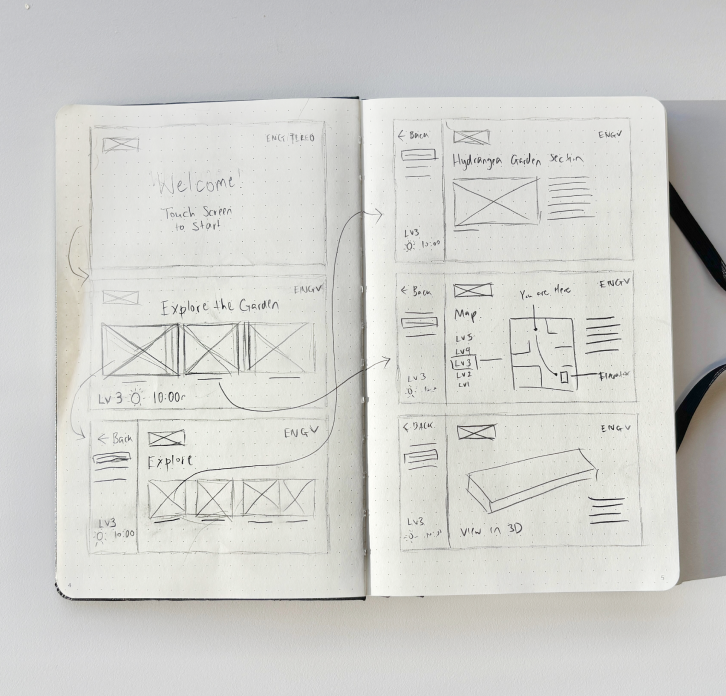 Welcome!
Touch Screen
to Start
ENGV
Explore the Garden
Lv 3 10:00
← Back
ENGV
Explore
LV3
10:00
4
← Back
ENGV
Hydrangea Garden Section
LV3
10:00
← Back
ENGV
You are Here
Map
LV5
LV4
LV3
LV2
LV1
LV3
← BACK
ENGV
LV3
View in 3D
5